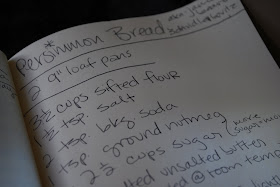 *
Persimmon Bread
aka
2 9" loaf pans
3½ cups sifted flour
1½ tsp. salt
2 tsp. bkg soda
1 tsp. ground nutmeg
2½ cups sugar (more
melted unsalted butter
@ room temp